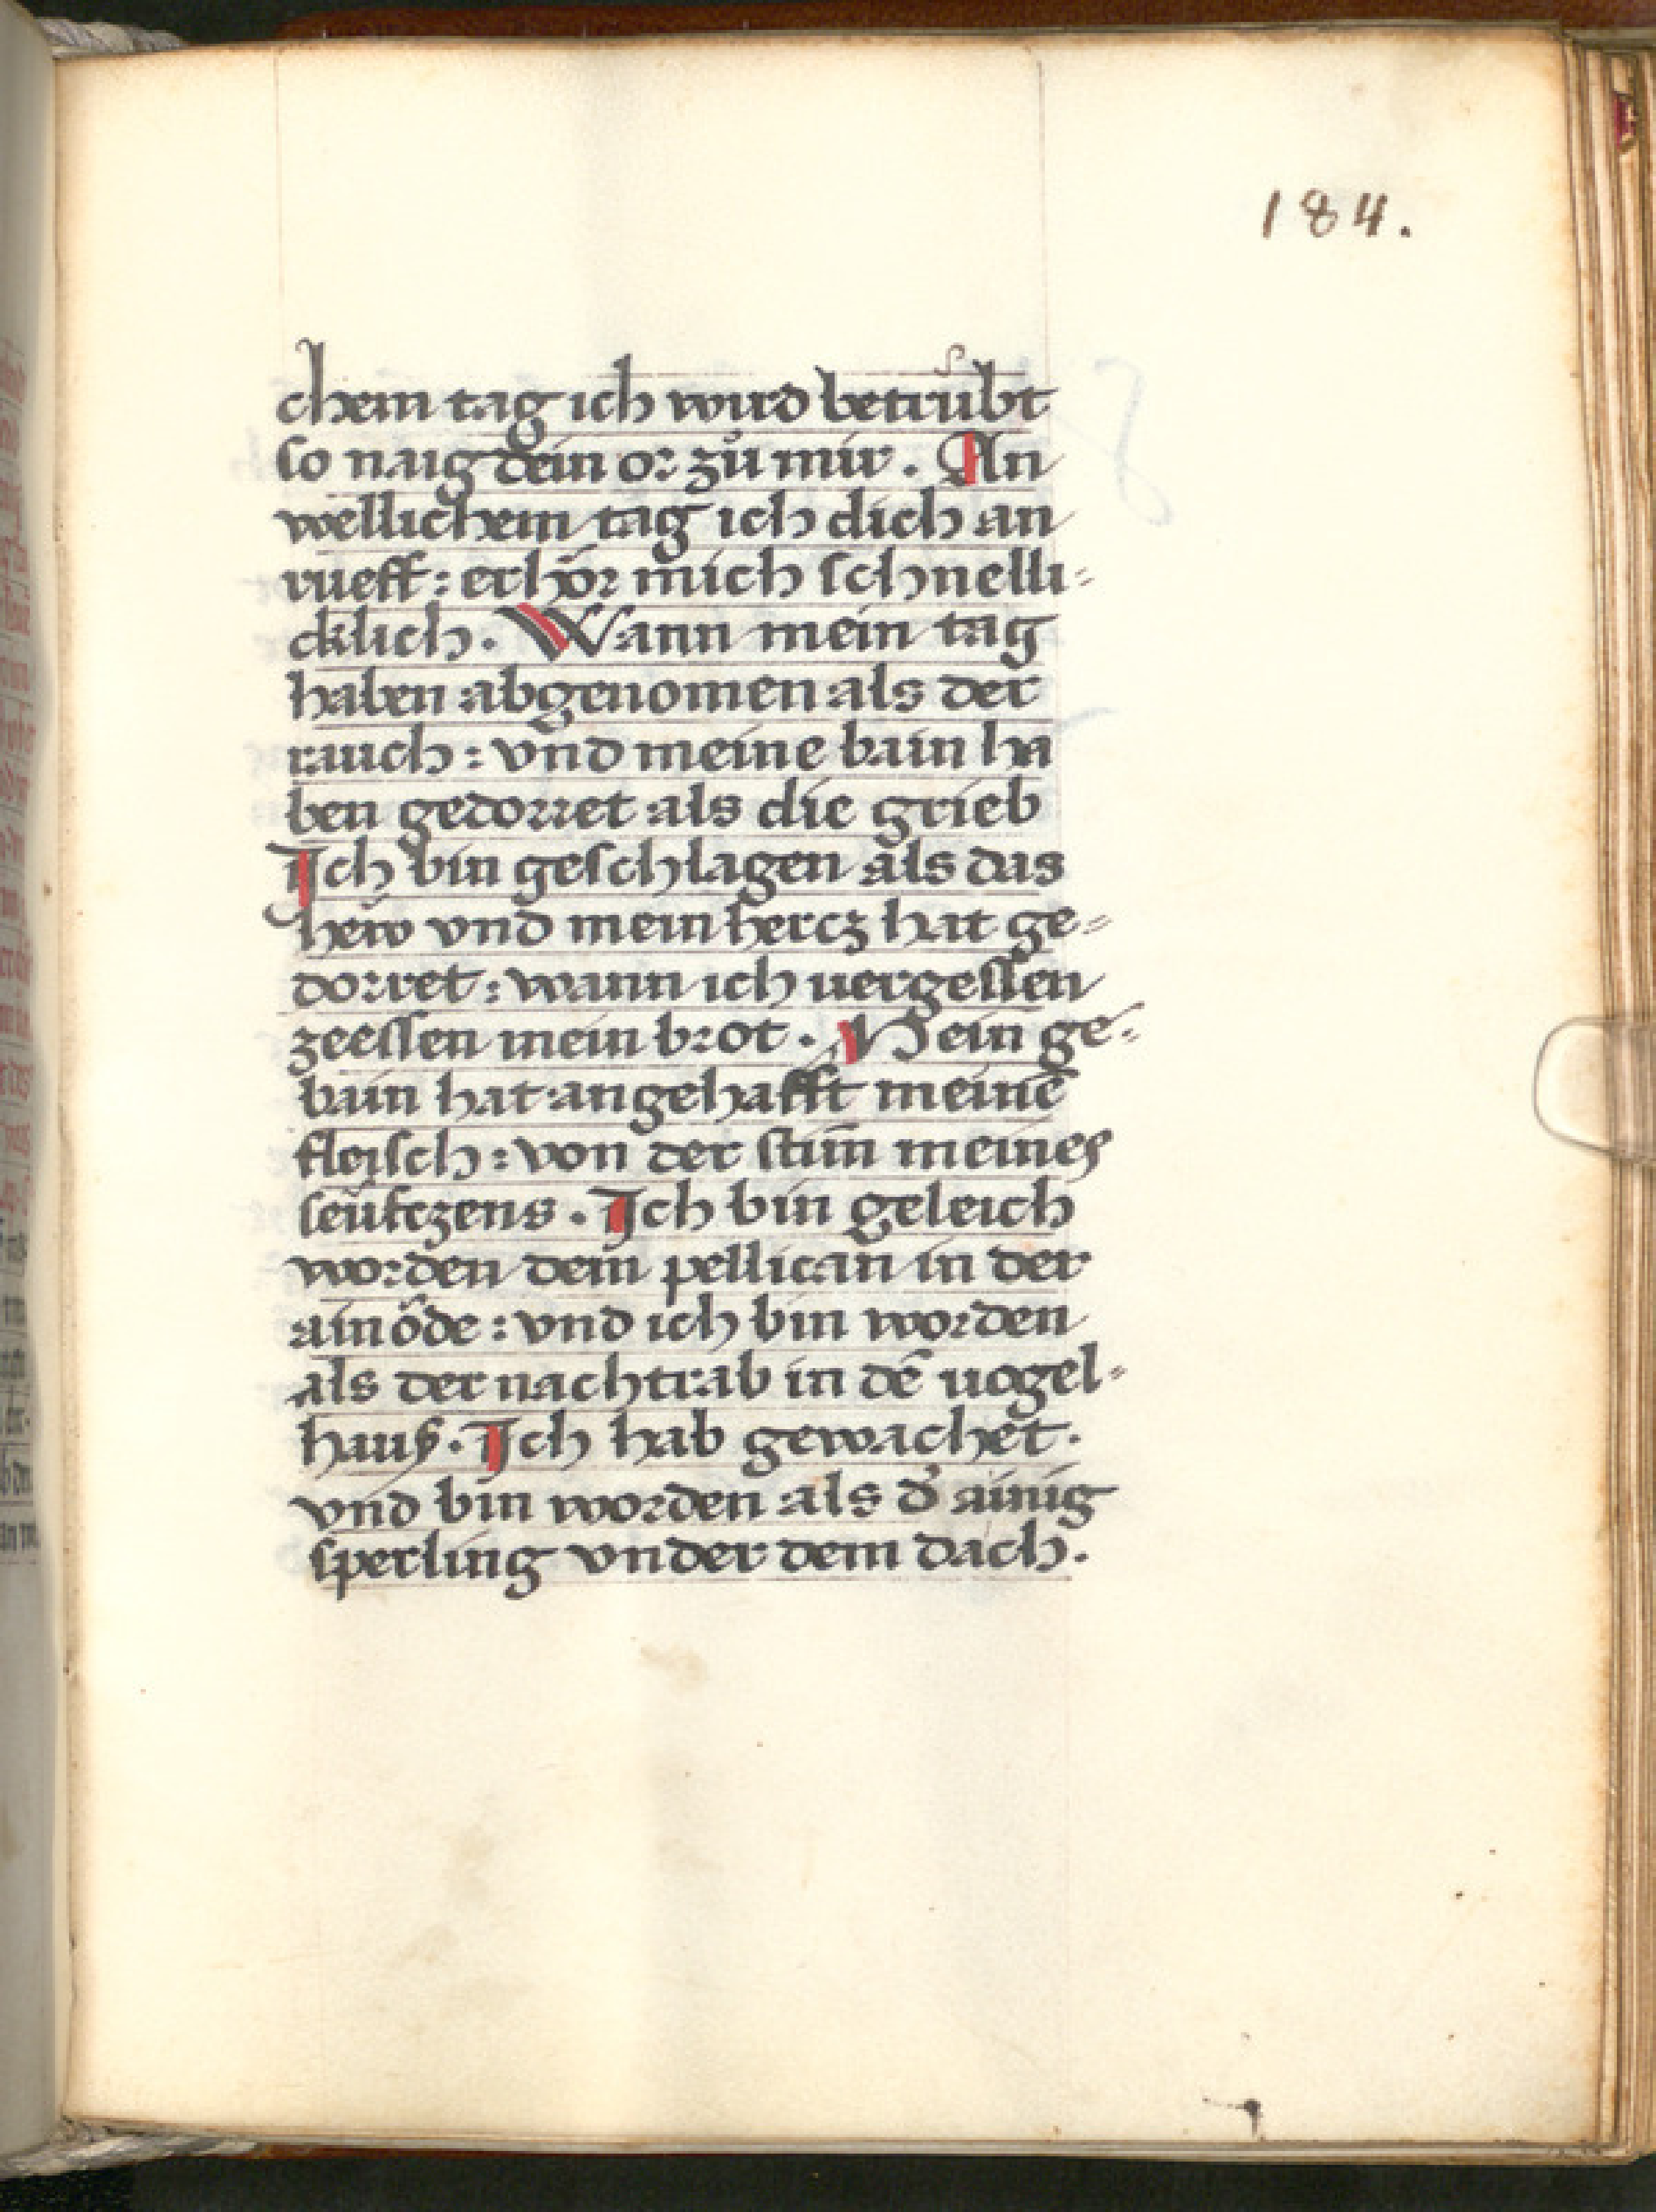 184.
chem tag ich wird betrübt
so naig dein or zů mir. An
wellichem tag ich dich an
rueff: erhör mich schnelli=
cklich. Wann mein tag
haben abgenomen als der
rauch: vnd meine bain ha
ben gedorret als die grieb
Ich bin geschlagen als das
heẅ vnd mein hercz hat ge=
dorret: wann ich uergessen
zeessen mein brot. Mein ge=
bain hat angehafft meinē
fleisch: von der stim̄ meines
seüfczens. Ich bin geleich
worden dem pellican in der
ainöde: vnd ich bin worden
als der nachtrab in dē uogel=
hauß. Ich hab gewachet.
vnd bin worden als d̕ ainig
sperling vnder dem dach.